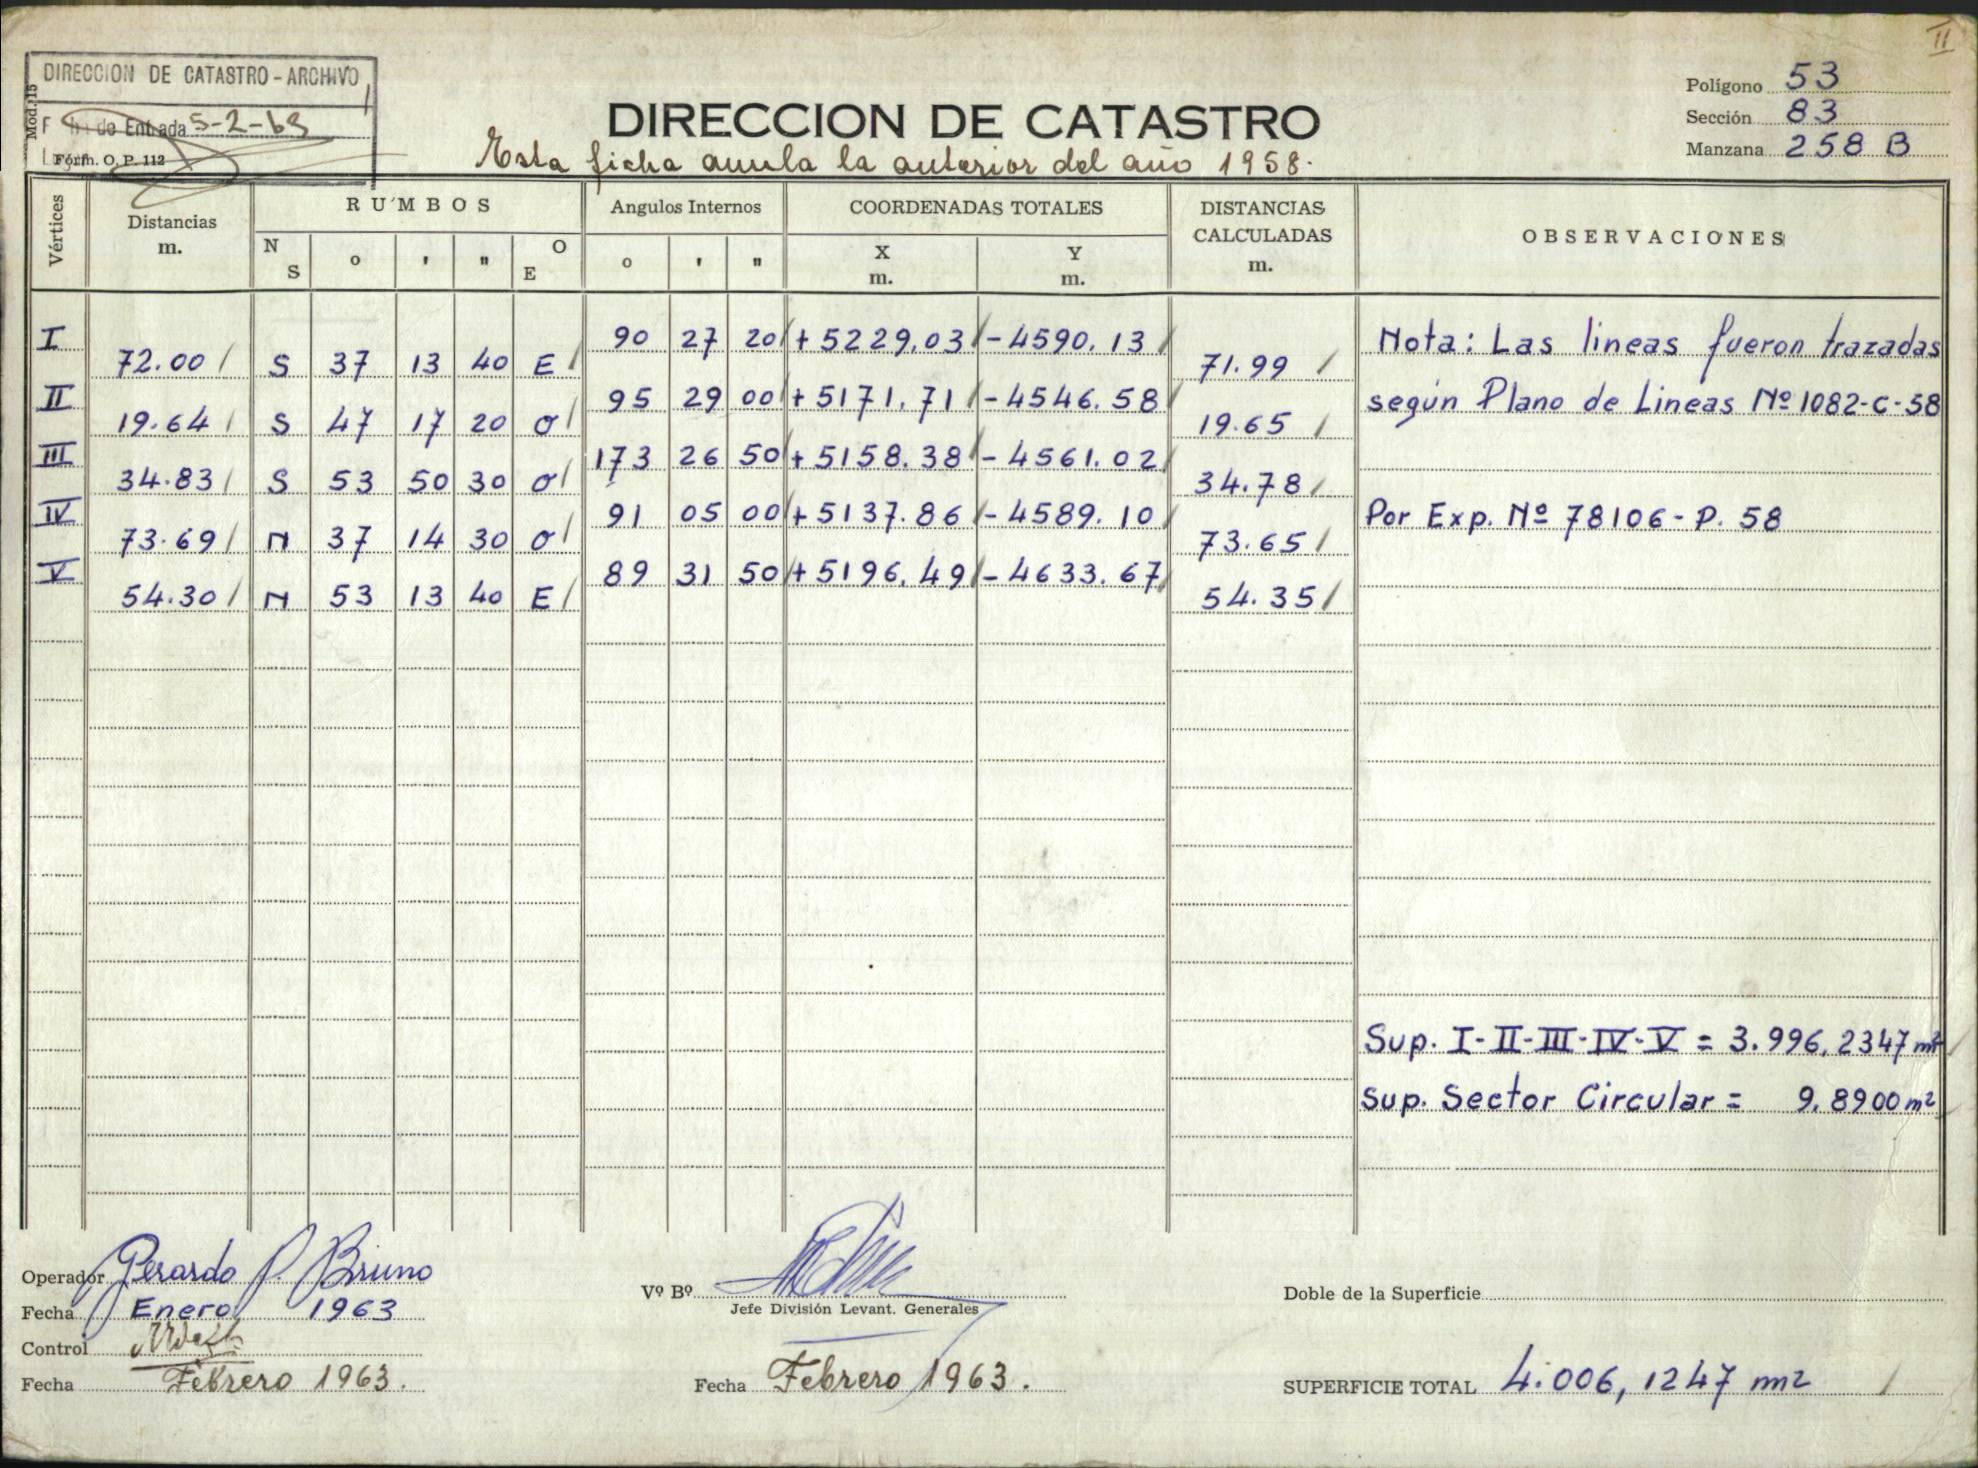 II
DIRECCION DE CATASTRO - ARCHIVO
Mod. 15
Fecha de Entrada 5-2-63
Form. O. P. 112
DIRECCION DE CATASTRO
Esta ficha anula la anterior del año 1958.
Polígono 53
Sección 83
Manzana 258 B
Vértices
Distancias m.
RUMBOS
N S ° ' " O E
Angulos Internos
° ' "
COORDENADAS TOTALES
X m. Y m.
DISTANCIAS CALCULADAS m.
OBSERVACIONES
I 90 27 20 +5229,03 -4590.13
72.00 S 37 13 40 E 71.99
II 95 29 00 +5171.71 -4546.58
19.64 S 47 17 20 O 19.65
III 173 26 50 +5158.38 -4561.02
34.83 S 53 50 30 O 34.78
IV 91 05 00 +5137.86 -4589.10
73.69 N 37 14 30 O 73.65
V 89 31 50 +5196.49 -4633.67
54.30 N 53 13 40 E 54.35
Nota: Las lineas fueron trazadas
según Plano de Lineas Nº 1082-C-58
Por Exp. Nº 78106-P. 58
Sup. I-II-III-IV-V = 3.996,2347 m²
Sup. Sector Circular = 9,8900 m²
Operador Gerardo P. Bruno
Fecha Enero 1963
Control
Fecha Febrero 1963.
Vº Bº
Jefe División Levant. Generales
Fecha Febrero 1963.
Doble de la Superficie
SUPERFICIE TOTAL 4.006,1247 m²